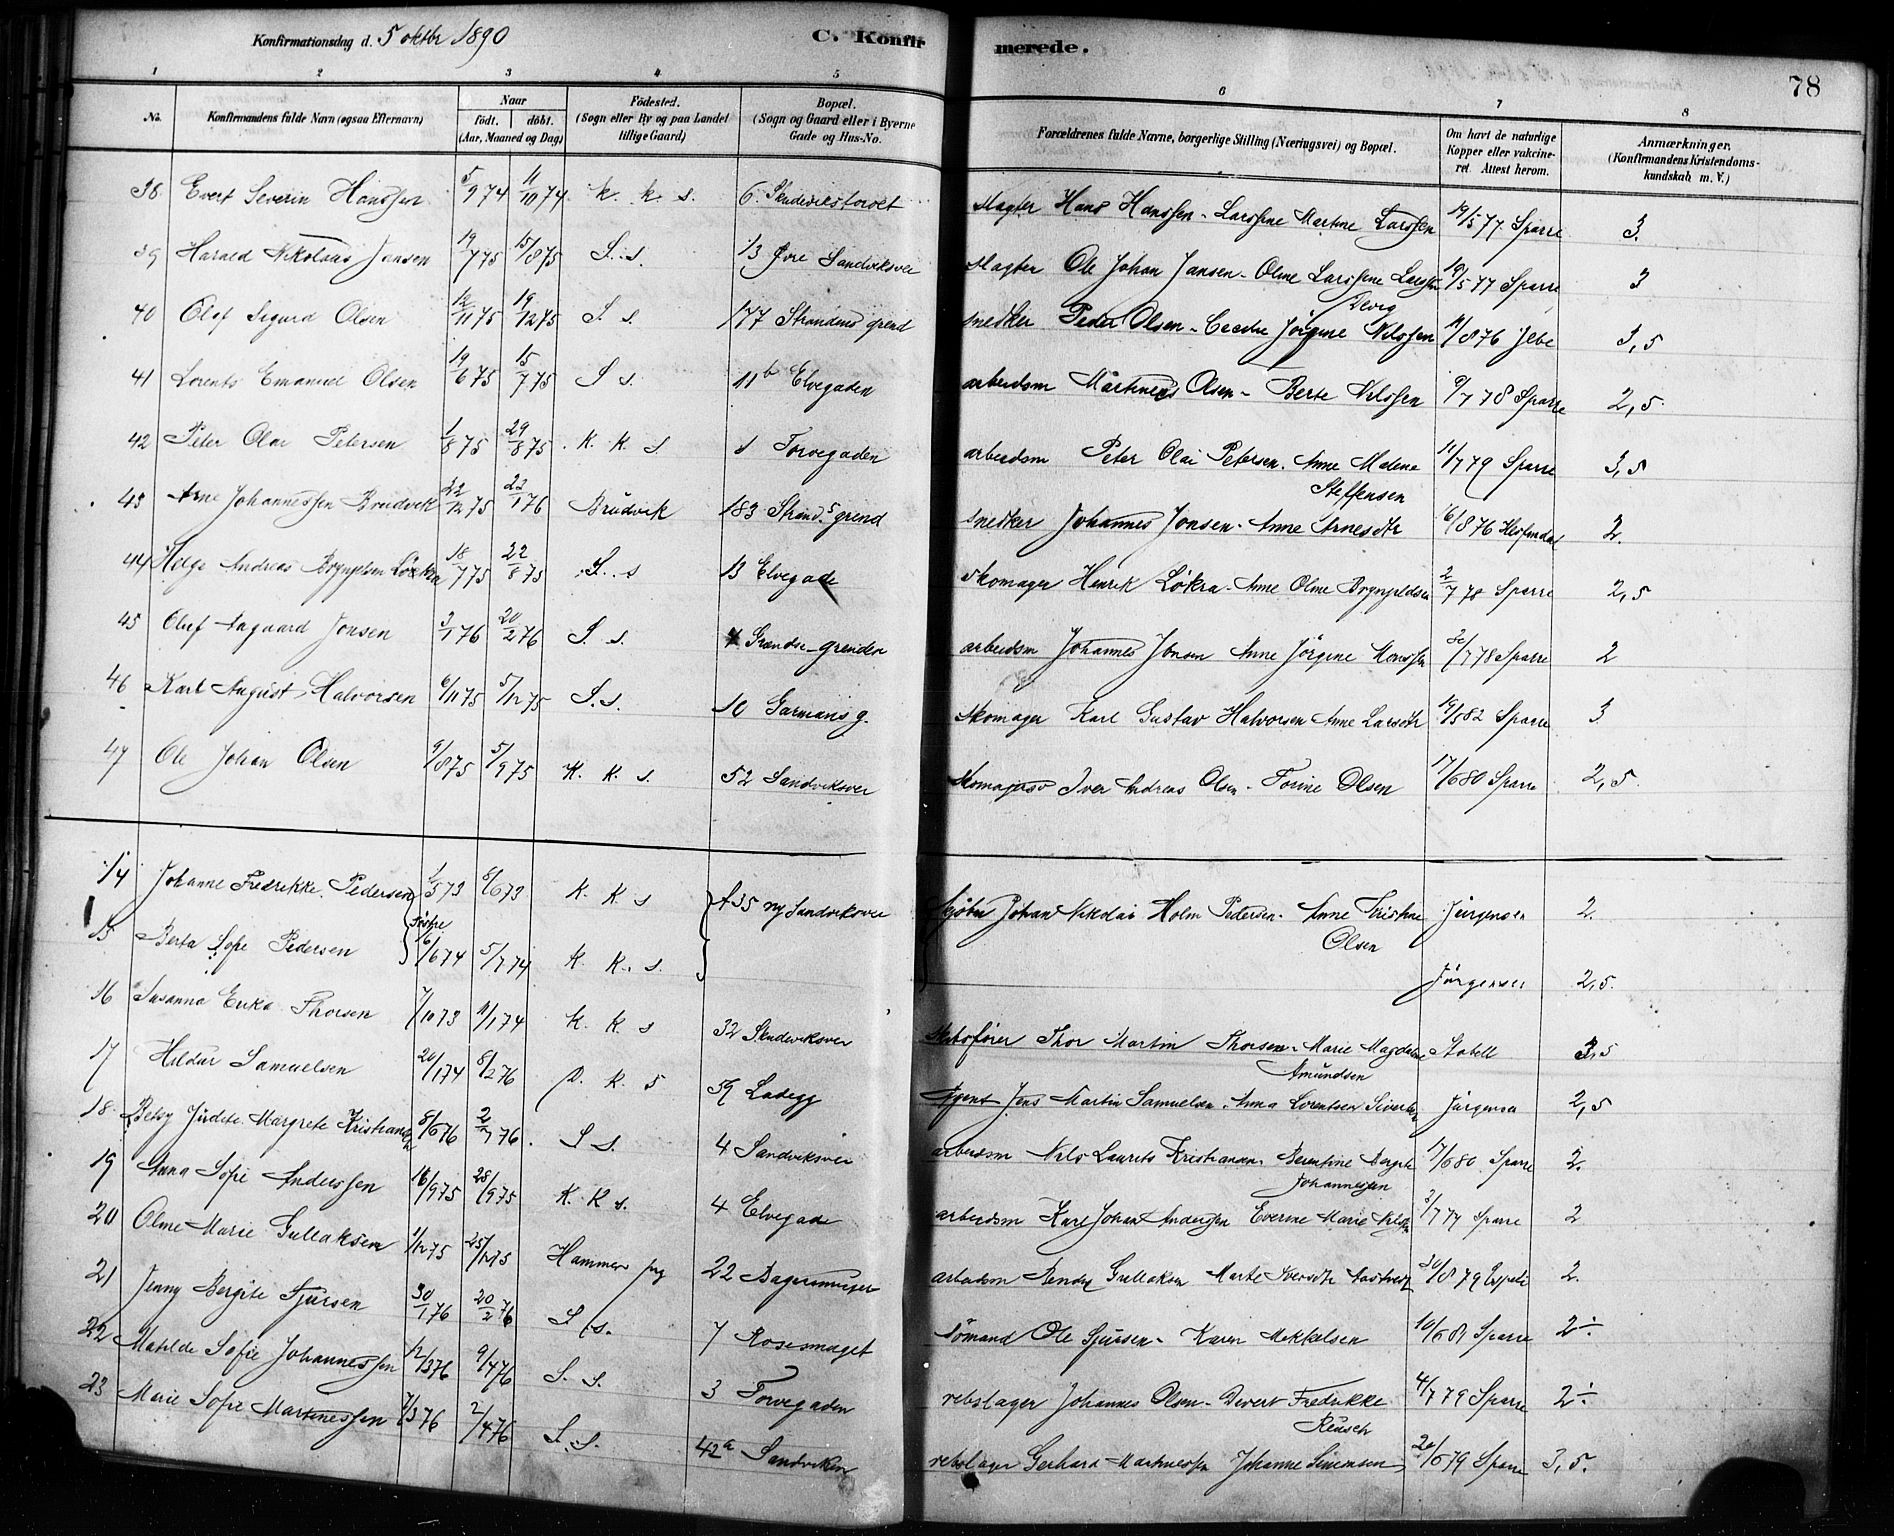 Konfirmationsdag d. 5 oktbr 1890
C. Konfir
merede.
78
1 2 3 4 5 6 7 8
No.
Konfirmandens fulde Navn (ogsaa Efternavn)
Naar
födt. döbt.
(Aar, Maaned og Dag)
Födested.
(Sogn eller By og paa Landet
tillige Gaard)
Bopæl.
(Sogn og Gaard eller i Byerne
Gade og Hus-No.
Forældrenes fulde Navne, borgerlige Stilling (Næringsvei) og Bopæl.
Om havt de naturlige
Kopper eller vakcine-
ret. Attest herom.
Anmærkninger.
(Konfirmandens Kristendoms-
kundskab m. V.)
38 Evert Severin Hanssen 5/9 74 11/10 74 K. K. s. 6 Skudevikstorvet Slagter Hans Hanssen - Larssine Martine Larssen 19/5 77 Sparre 3.
39 Harald Nikolaus Jansen 19/7 75 15/8 75 S. s. 13 Øvre Sandviksvei Slagter Ole Johan Jansen - Oline Larssine Larssen 19/5 77 Sparre 3
40 Olaf Sigurd Olsen 12/11 75 19/12 75 S. s. 177 Strandens grend snedker Peder Olsen - Jörgine Nilssen 11/8 76 3,5
41 Lorents Emanuel Olsen 19/6 75 15/7 75 S s. 11b Elvegaden arbeidsm Martinus Olsen - Berte Nilssen 9/7 78 Sparre 2,5
42 Peter Olai Petersen 1/8 75 29/8 75 K. K. s 1 Torvegaden arbeidsm Peter Olai Petersen. Anne Malene 11/7 79 Sparre 3,5
Steffensen
43 Arne Johannessen Brudvik 22/12 75 22/1 76 Brudvik 183 Strand.s grend snedker Johannes Jonsen - Anne Arnesdtr 16/8 76 2.
44 Helge Andreas Brynjelsen Lökra 18/7 75 22/8 75 S. s 13 Elvegade Skomager Henrik Lökra - Anne Oline Brynjeldsen 2/7 78 Sparre 2,5
45 Oluf Aagaard Jonsen 3/1 76 20/2 76 S. s. 4 Grændse-grenden arbeidsm Johannes Jonsen Anne Jörgine Monssen /7 78 Sparre 2
46 Karl August Halvorsen 6/11 75 5/12 75 S. s. 10 Garmans g. Skomager Karl Gustav Halvorsen Anne Larsdtr 19/5 82 Sparre 3
47 Ole Johan Olsen 9/8 75 5/9 75 K. K. s. 52 Sandviksvei Skomagersv Iver Andreas Olsen - Torine Olsen 17/6 80 Sparre 2,5
14 Johanne Fredrikke Pedersen 1/5 73 8/6 73 K. K s 135 ny Sandviksvei Johan Nikolai Holm Pedersen - Anne Kristine Jürgensen 2.
Olsen
15 Berta Sofie Pedersen 16/6 74 5/7 74 K. K. s. Jörgensen 2,5.
16 Susanna Erika Thorsen 7/10 73 11/1 74 K. K. s 32 Skudeviksvei Thor Martin Thorsen - Marie Magdalene Stabell 3,5
Amundsen
17 Hildur Samuelsen 20/1 74 8/2 76 D. K. s 59 Ladegg Agent Jens Martin Samuelsen. Anna Lorentsen Sivertsen Jürgensen 2,5
18 Betsy Judite Margrete Kristiansen 8/6 76 2/7 76 S s. 4 Sandviksvei arbeidsm Nils Laurits Kristiansen. Berentine Bergite 17/6 80 Sparre 2.
Johannessen
19 Anna Sofie Anderssen 16/9 75 28/9 75 K. K s. 4 Elvegade arbeidsm Karl Johan Andersen Everine Marie 3/7 77 Sparre 2
20 Oline Marie Gullaksen 1/12 75 25/12 75 Hammer pg 22 arbeidsm Gullaksen Marte 30/8 79 2.
21 Jenny Bergite Sjursen 30/1 76 20/2 76 S. s. 7 Rosesmuget Sömand Ole Sjursen - Karen Mikkelsen 10/6 81 Sparre 2÷
22 Matilde Sofie Johannessen 12/3 76 9/4 76 S. s. 3 Torvegaden rebslager Johannes Olsen - Divert Fredrikke 4/7 79 Sparre 2÷
Reusch
23 Marie Sofie Martinessen 7/3 76 2/4 76 S. s. 42a Sandviken rebslager Gerhard Martinessen Johanne Simensen 20/6 79 Sparre 3,5.